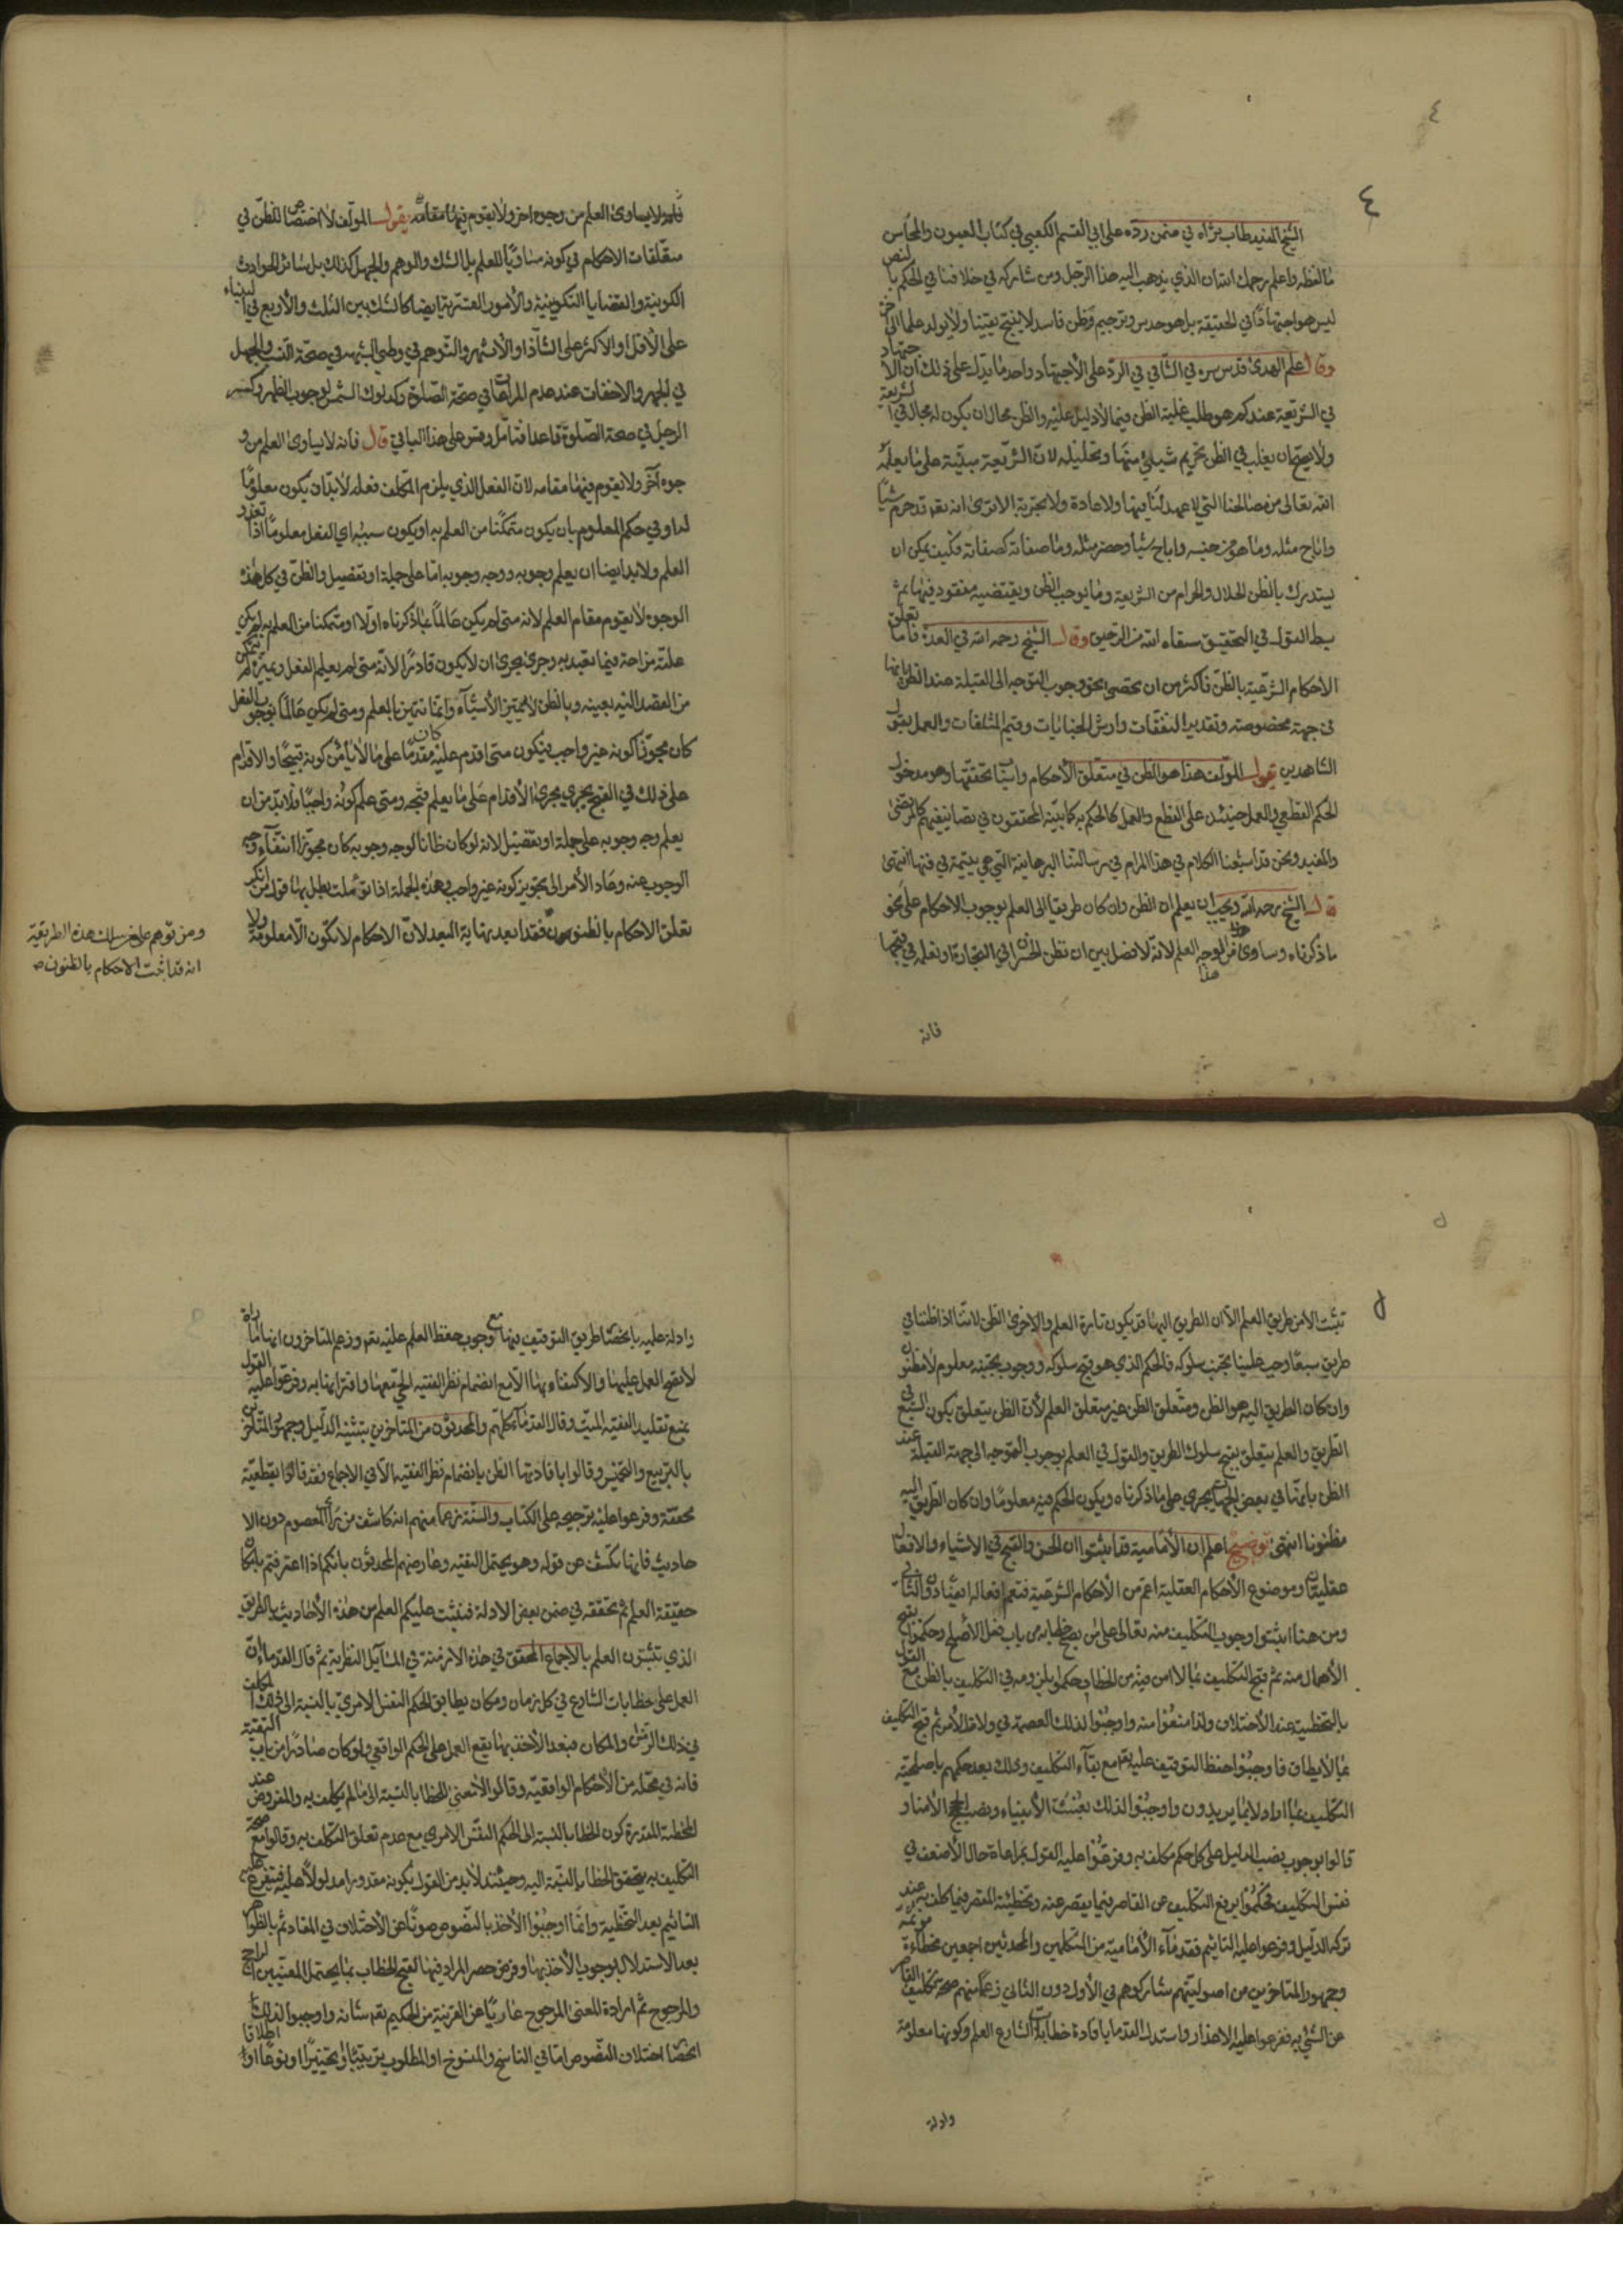 ٤
٤
الشيخ المفيد طاب ثراه في ضمن رده على ابي القسم الكعبي في كتاب العيون والمحاسن
ما لفظه واعلم رحمك الله ان الذي يذهب اليه هذا الرجل ومن شاركه في خلافنا في الحكم بالنص
ليس هو اجتهادا في الحقيقة بل هو حدس وترجيم وظن فاسد لا ينتج يقينا ولا يولد علما الى آخره
وقال علم الهدى قدس سره في الشافي في الرد على الاجتهاد واحد ما يدل على ذلك ان الاجتهاد
في الشريعة عندكم هو طلب غلبة الظن فيما لا دليل عليه والظن محال ان يكون له مجال في الشريعة
ولا يصح ان يغلب في الظن تحريم شيئ منها وتحليله لان الشريعة مبنية على ما يعلمه
الله تعالى من مصالحنا التي لا عهد لنا فيها ولا عادة ولا تجربة الا ترى انه تعه قد حرم شيئا
واباح مثله وما هو من جنسه واباح شيئا وحضر مثله وما صفاته كصفاته فكيف يمكن ان
يستدرك بالظن الحلال والحرام من الشريعة وما يوجب الظن ويقتضيه مفقود فيها ثم
بسط القول في التحقيق سقاه الله من الرحيق وقال الشيخ رحمه الله في العدة فاما تعلق
الاحكام الشرعية بالظن فاكثر من ان تحصى نحو وجوب التوجه الى القبلة عند الظن بانها
في جهة مخصوصة وتقدير النفقات وارش الجنايات وقيم المتلفات والعمل بقول
الشاهدين يقول المؤلف هذا هو الظن في متعلق الاحكام واسباب تحققها وهو مدخول
لحكم القطعي والعمل حينئذ على القطع والعمل كالحكم به كما بينه المحققون في تصانيفهم كالمرتضى
والمفيد ونحن قد اسبغنا الكلام في هذا المرام في رسالتنا البرهانية التي هي يتيمة في فنها انتهى
قال الشيخ رحمه الله ويجب ان يعلم ان الظن وان كان طريقا الى العلم بوجوب الاحكام على نحو
ما ذكرناه وساوى من هذا الوجه العلم لانه لا فصل بين ان نظن الخسران في التجارة او نعلمه في قبحها
هذا
فانه
فانه لا يساوى العلم من وجوه اخر ولا يقوم فيها مقامه يقول المؤلف لا اختصاص للظن في
متعلقات الاحكام في كونه مساويا للعلم بل الشك والوهم والجهل كذلك بل سائر الحوادث
الكونية والقضايا التكوينية والامور العشرية ايضا كالشك بين الثلث والاربع في البناء
على الاقل او الاكثر على الشاذ او الاشهر والتوهم في وطي الشبهه في صحة النسب والجهل
في الجهر والاخفات عند عدم المراعات في صحة الصلوة وكدلوك الشمس لوجوب الظهر وكسر
الرجل في صحة الصلوة قاعدا فتامل وقس على هذا الباقي قال فانه لا يساوى العلم من و
جوه آخر ولا يقوم فيها مقامه لان الفعل الذي يلزم المكلف فعله لابد ان يكون معلوما
له او في حكم المعلوم بان يكون متمكنا من العلم به او يكون سببه اي الفعل معلوما اذا تعذر
العلم ولابد ايضا ان يعلم وجوبه ووجه وجوبه اما على جملة او تفصيل والظن في كل هذه
الوجوه لا يقوم مقام العلم لانه متى لم يكن عالما بما ذكرناه اولا او متمكنا من العلم به لم يكن
علته مزاحة فيما تعبد به وجرى مجرى ان لا يكون قادرا لانه متى لم يعلم الفعل ويميزه لم يتمكن
من القصد اليه بعينه وبالظن لا تتميز الاشياء وانما تتميز بالعلم ومتى لم يكن عالما بوجوب الفعل
كان مجوزا كونه غير واجب فيكون متى اقدم عليه كان مقدما على ما لا يامن كونه قبيحا والاقدام
على ذلك في القبح يجري مجرى الاقدام على ما يعلم قبحه ومتى علم كونه واجبا ولابد من ان
يعلم وجه وجوبه على جملة او تفصيل لانه لو كان ظانا لوجه وجوبه كان مجوزا انتفاء وجه
الوجوب عنه وعاد الامر الى تجويز كونه غير واجب وهذه الجملة اذا تؤملت بطل بها قول من انكر
تعلق الاحكام بالظنون فقد ابعد نهاية البعد لان الاحكام لا تكون الا معلومة ولا
ومن توهم على من سلك هذه الطريقة
انه قد اثبت الاحكام بالظنون صح
٥
٥
تثبت الا من طريق العلم الا ان الطريق اليها قد يكون تارة العلم والاخرى الظن لاننا اذا ظننا في
طريق سبعا وجب علينا تجنب سلوكه فالحكم الذي هو قبح سلوكه ووجوب تجنبه معلوم لا مظنون
وان كان الطريق اليه هو الظن ومتعلق الظن غير متعلق العلم لان الظن يتعلق بكون السبع في
الطريق والعلم يتعلق بقبح سلوك الطريق والقول في العلم بوجوب التوجه الى جهة القبلة عند
الظن بانها في بعض الجهات يجري على ما ذكرناه ويكون الحكم فيه معلوما وان كان الطريق اليه
مظنونا انتهى توضيح اعلم ان الامامية قد اثبتوا ان الحسن والقبح في الاشياء والافعال
عقليان وموضوع الاحكام العقلية اعم من الاحكام الشرعية فتعم افعاله
ومن هنا اثبتوا وجوب التكليف منه تعالى على من يصح خطابه من باب فعل الاصلح وحكموا بقبح
الاهمال منه ثم قبح التكليف بما لا امن فيه من الخطا وحكموا بلزومه في التكليف بالظن مع القول
بالتخطية عند الاختلاف ولذا منعوا منه واوجبوا لذلك العصمة في ولاة الامر ثم قبح التكليف
بما لا يطاق فاوجبوا حفظ التوقيف عليه تعه مع بقاء التكليف وذلك بعد حكمهم باصلحية
التكليف بما اراد لا بما يريدون واوجبوا لذلك بعث الانبياء ونصب الحجج الامنا و
قالوا بوجوب نصب الدليل على كل حكم مكلف به وفرعوا عليه القول بمراعاة حال الاضعف في
نفس التكليف فحكموا برفع التكليف عن القاصر فيما يقصر عنه وتخطئة المقصر فيما كلف به عند
تركه الدليل وفرعوا عليه التاثيم فقدماء الامامية من المتكلمين والمحدثين اجمعين مخطئة مؤثمة
وجمهور المتاخرين من اصوليتهم شاركوهم في الاول دون الثاني زعما منهم صحة تكليف القاصر
عن الشئ به ففرعوا عليه الاعذار واستدل القدما بافادة خطابات الشارع العلم وكونها معلومة
وادلة
وادلة عليه بانحصار طريق التوقيف فيها مع وجوب حفظ العلم عليه تعه وزعم المتاخرون انها امارة
لا يصح العمل عليها والاكتفاء بها الا مع انضمام نظر الفقيه الحي معها واقترانها به وفرعوا عليه القول
بمنع تقليد الفقيه الميت وقال القدماء كلهم والمحدثون من المتاخرين بتثنية الدليل وجمهور المتاخرين
بالتربيع والتخميس وقالوا بافادتها الظن بانضمام نظر الفقيه الا في الاجماع فقد قالوا بقطعية
محققه وفرعوا عليه ترجيحه على الكتاب والسنة زعما منهم انه كاشف من راي المعصوم دون الا
حاديث فانها تكشف عن قوله وهو يحتمل التقية وعارضهم المحدثون بانكم اذا اعترفتم بامكان
حقيقة العلم ثم تحققه في ضمن بعض الادلة فنثبت عليكم العلم من هذه الاحاديث بالطريق
الذي تثبتون العلم بالاجماع المحقق في هذه الازمنة في المسايل النظرية ثم قال القدماء ان
العمل على خطابات الشارع في كل زمان ومكان يطابق الحكم النفس الامري بالنسبة الى ذلك المكلف
في ذلك الزمان والمكان فبعد الاخذ بها يقع العمل على الحكم الواقعي ولو كان صادرا من باب التقية
فانه في محله من الاحكام الواقعية وقالوا لا معنى للخطا بالنسبة الى ما لم يكلف به والمفروض عند
المخطئة المعذرة كون الخطا بالنسبة الى الحكم النفس الامري مع عدم تعلق التكلف به وقالوا مع صحة
التكليف به يتحقق الخطا بالنسبة اليه وحينئذ لابد من القول بكونه مقدورا مدلولا عليه فيتفرع عليه
التاثيم بعد التخطية وانما اوجبوا الاخذ بالنصوص صونا عن الاختلاف في المفاد ثم بالظواهر
بعد الاستدلال بوجوب الاخذ بها وفرض حصر المراد فيها لقبح الخطاب بما يحتمل المعنيين الراجح
والمرجوح ثم ارادة المعنى المرجوح عاريا عن القرينة من الحكيم تعه شانه واوجبوا لذلك
ايضا اختلاف النصوص اما في الناسخ والمنسوخ او المطلوب ترتيبا او تخييرا او نوعا او اطلاقا